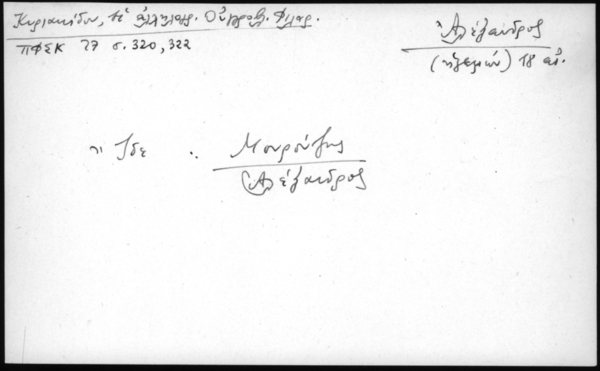 Κυριακίδου, Ἡ ἀλληλογρ. Οὐγγροβλ.
ΠΦΣΚ 27 σ. 320, 322
Ἀλέξανδρος
(ἡγεμών) 18 αἰ.
Ἴδε : Μουρούζης
(Ἀλέξανδρος